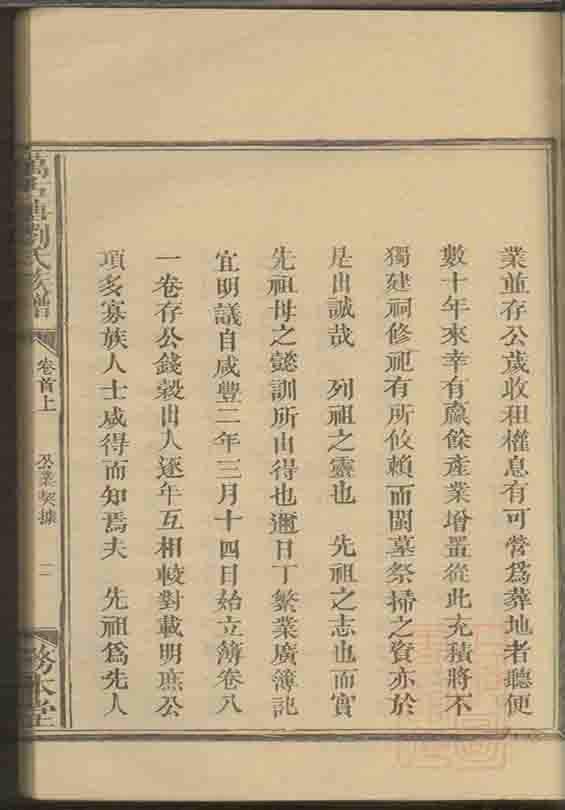 業並存公歲收租權息有可營爲葬地者聽便
數十年來幸有贏餘產業增置從此充積將不
獨建祠修祀有所攸賴而闔墓祭掃之資亦於
是出誠哉　列祖之靈也　先祖之志也而實
先祖母之懿訓所由得也邇日丁繁業廣簿記
宜明議自咸豐二年三月十四日始立薄卷八
一卷存公錢穀出入逐年互相較對載明庶公
項多寡族人士咸得而知焉夫　先祖爲先人
劉氏族譜
卷首上
公業契據
二
務本堂